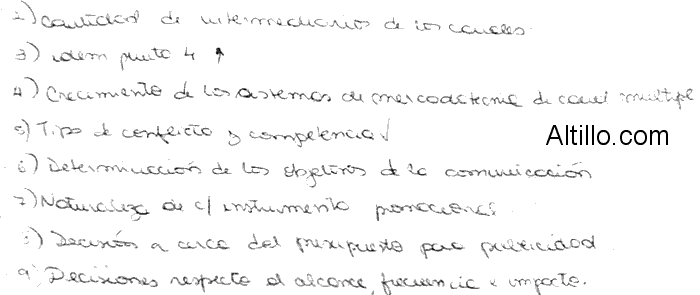 2) Cantidad de intermediarios de los canales.
3) idem punto 4 ↑
4) Crecimiento de los sistemas de mercadotecnia de canal multiple
5) Tipo de conflicto y competencia √
Altillo.com
6) Determinación de los objetivos de la comunicación
7) Naturaleza de c/ instrumento promocional
8) Decisión a cerca del presupuesto para publicidad
9) Decisiones respecto al alcance, frecuencia e impacto.